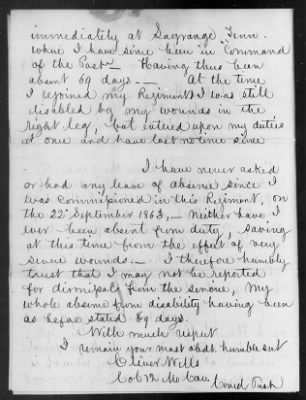 immediately at Lagrange Tenn.
where I have since been in Command
of the Post — Having thus been
absent 69 days — At the time
I rejoined my Regiment I was still
disabled by my wounds in the
right leg, but entered upon my duties
at once and have lost no time since
I have never asked
or had any leave of absence since I
was Commissioned in this Regiment, on
the 22d September 1863, — Neither have I
ever been absent from duty, saving
at this time from the effect of very
severe wounds — I therefore humbly
trust that I may not be reported
for dismissal from the service, My
whole absence from disability having been
as before stated 69 days.
With much respect
I remain your most obdt. humble svt
Oliver Wells
Col 12 Mo Cav
Comd Post